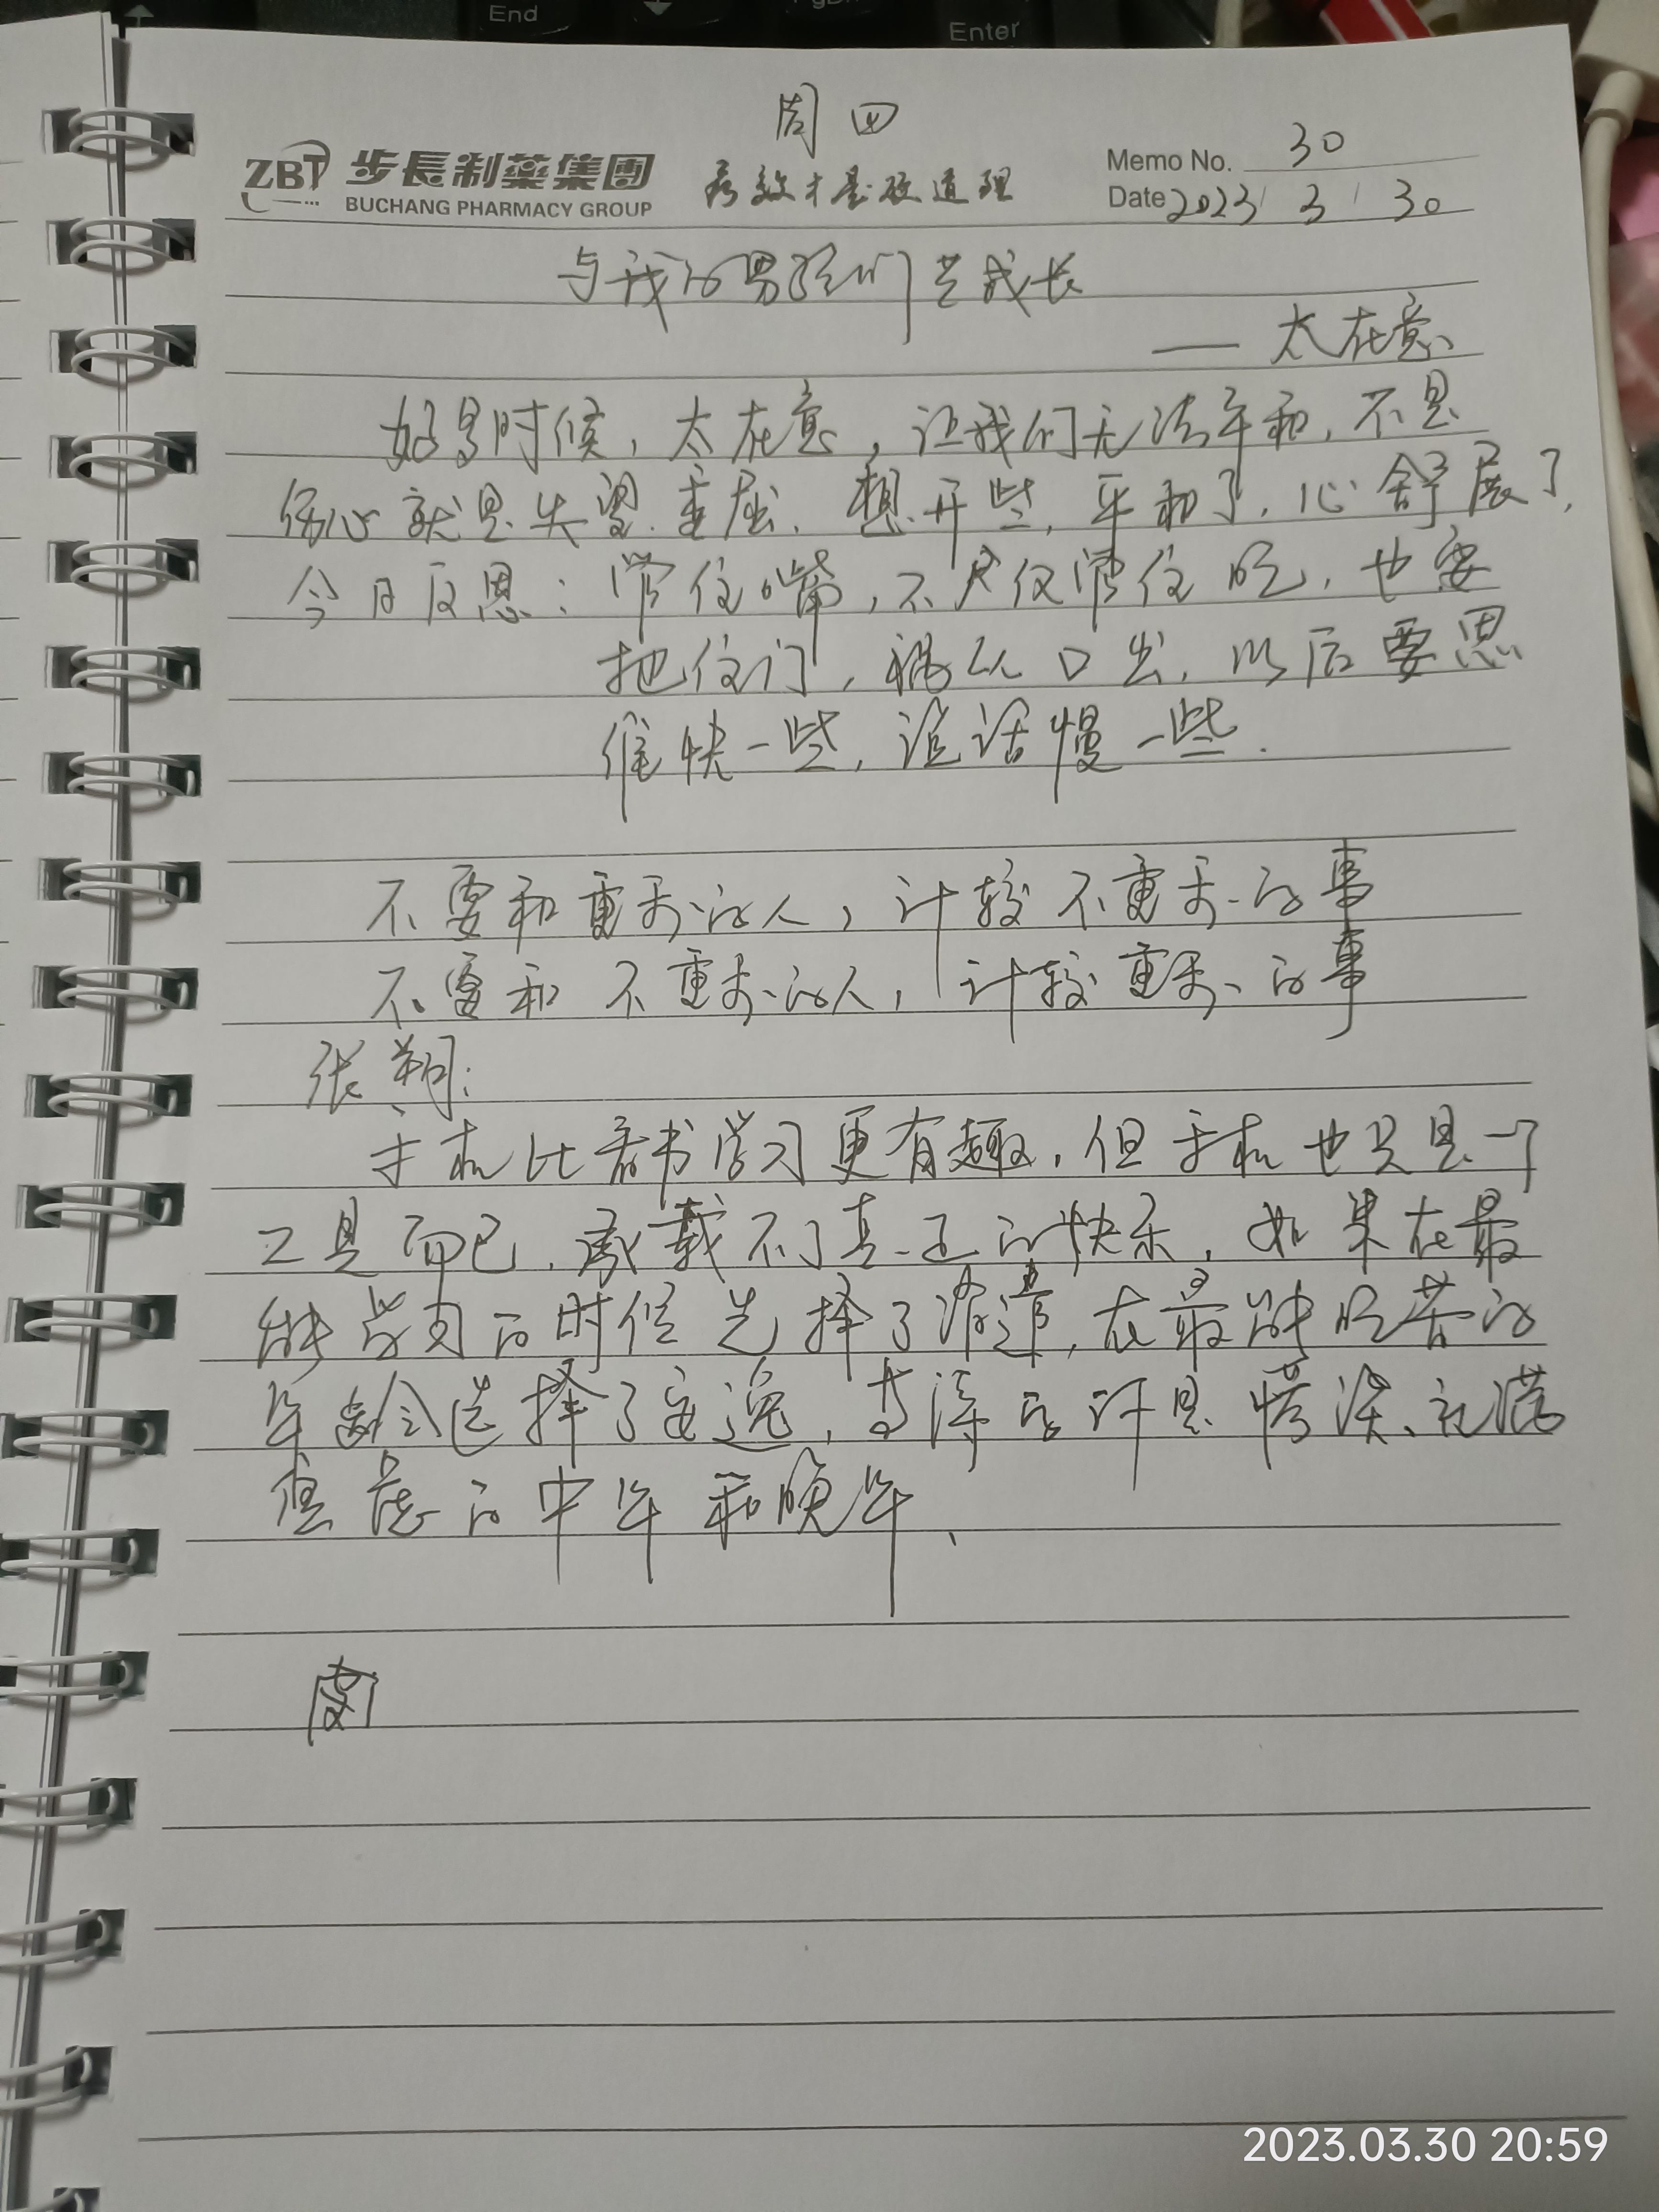 End
Enter
周四
ZBT 步長制藥集團
BUCHANG PHARMACY GROUP
疗效才是硬道理
Memo No. 30
Date 2023 / 3 / 30
与我的男孩们共成长
—— 太在意
好多时候，太在意，让我们无法平和，不是
伤心就是失望、委屈，想开些，平和了，心舒展了，
今日反思：管住嘴，不只仅管住吃，也要
把住门，祸从口出，以后要思
维快一些，说话慢一些.
不要和重要的人，计较不重要的事
不要和不重要的人，计较重要的事
张朔：
手机比看书学习更有趣，但手机也只是一个
工具而已，承载不了真正的快乐，如果在最
能学习的时候选择了消遣，在最能吃苦的
年龄选择了安逸，也许是 充满
的中年和晚年、
2023.03.30 20:59